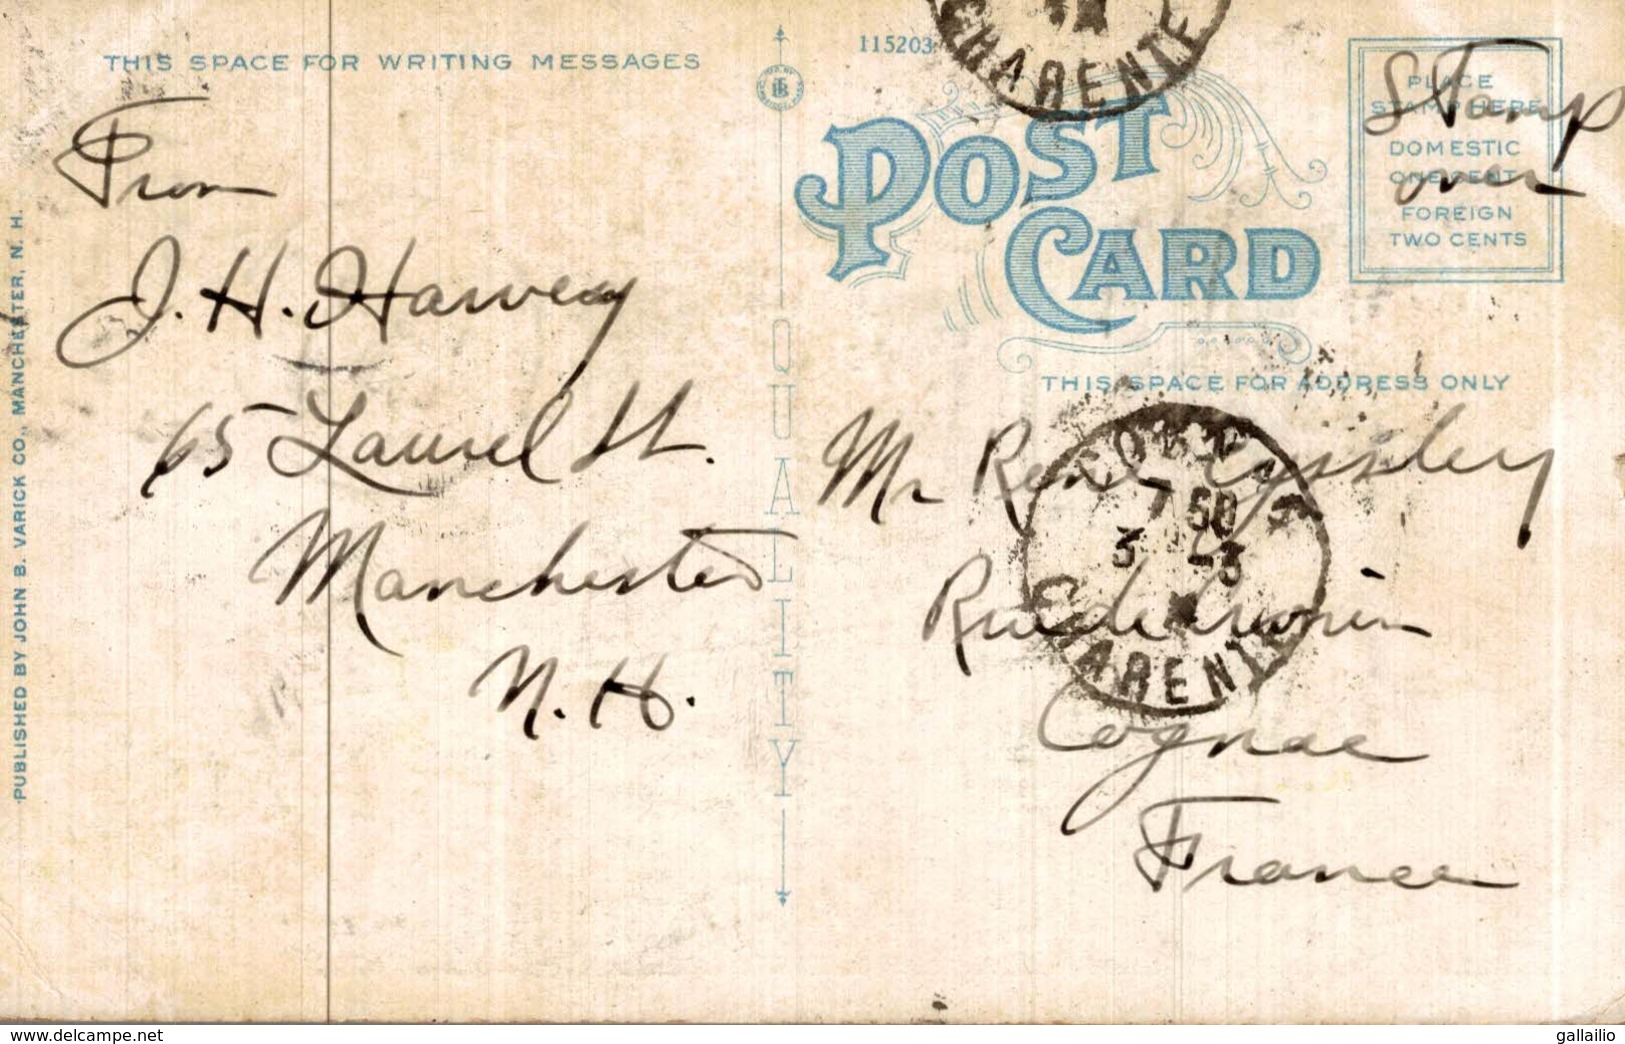 THIS SPACE FOR WRITING MESSAGES
From
J. H. Harvey
65 Laurel St.
Manchester
N. H.
PUBLISHED BY JOHN B. VARICK CO., MANCHESTER, N. H.
QUALITY
115203
CHARENTE
POST CARD
PLACE
STAMP HERE
DOMESTIC
ONE CENT
FOREIGN
TWO CENTS
Stamp
over
THIS SPACE FOR ADDRESS ONLY
Mr René
Rue de
Cognac
France
COGNAC
7 50
3 -3
CHARENTE
delcampe.net
gallailio